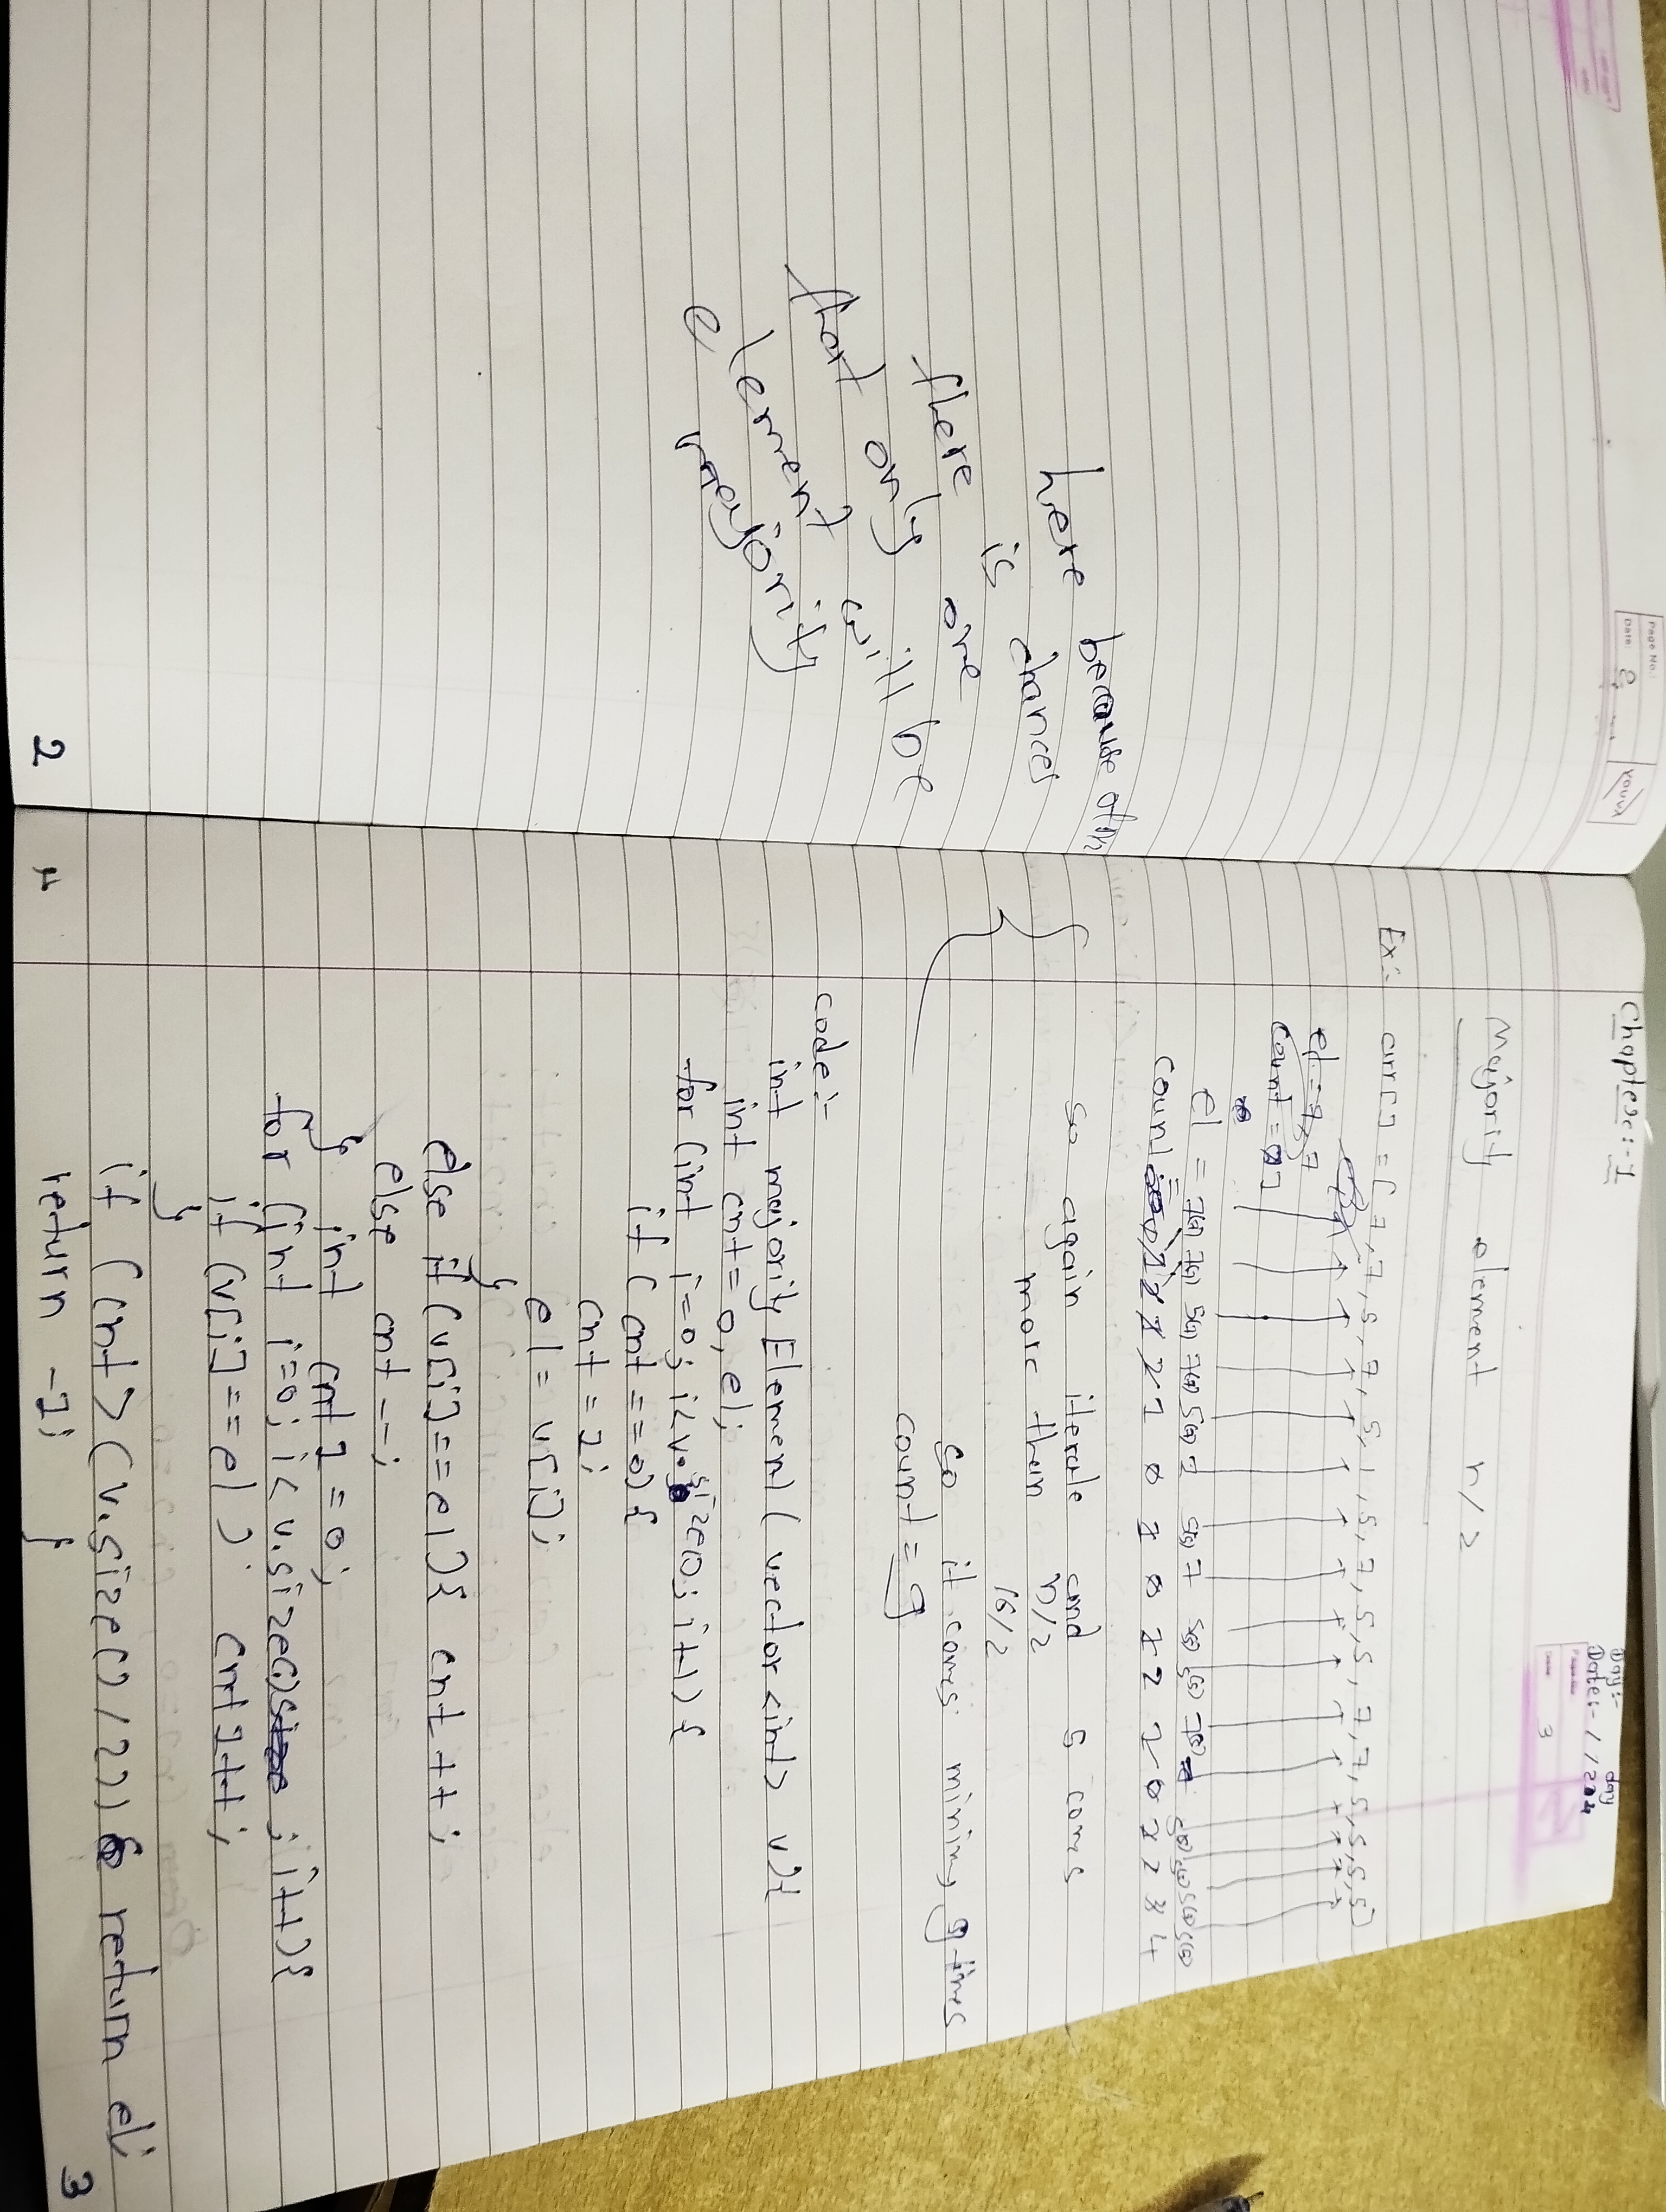 Page No.:
Date: 8
YOUVA
here because of in
there is chances
that only one
element will be
majority
2
Chapter:-1
Day:- day
Date:- / /2024
3
Majority element n/2
Ex:- arr[] = {7,7,5,7,5,1,5,7,5,5,7,7,5,5,5,5}
el = 7 5 7
count = 0 1
el = 7(1) 7(2) 5(1) 7(2) 5(1) 7 5(1) 7 5(1) 5(2)
count = 1 2 1 2 1 0 1 0 1 2 1 0 1 2 3 4
so again iterate and 5 coms
more then n/2
16/2
so it coms mining 9 times
count = 9
code:-
int majority Element( vector<int> v){
int cnt = 0, el;
for (int i=0; i<v.size(); i++) {
if ( cnt ==0) {
cnt = 1;
el = v[i];
}
else if (v[i]== el){ cnt ++ ;
else cnt --;
}
int cnt 1 = 0;
for (int i=0; i< v.size() ; i++){
if (v[i]== el) cnt 1++;
}
if (cnt > (v.size() / 2)) return el;
return -1; }
3